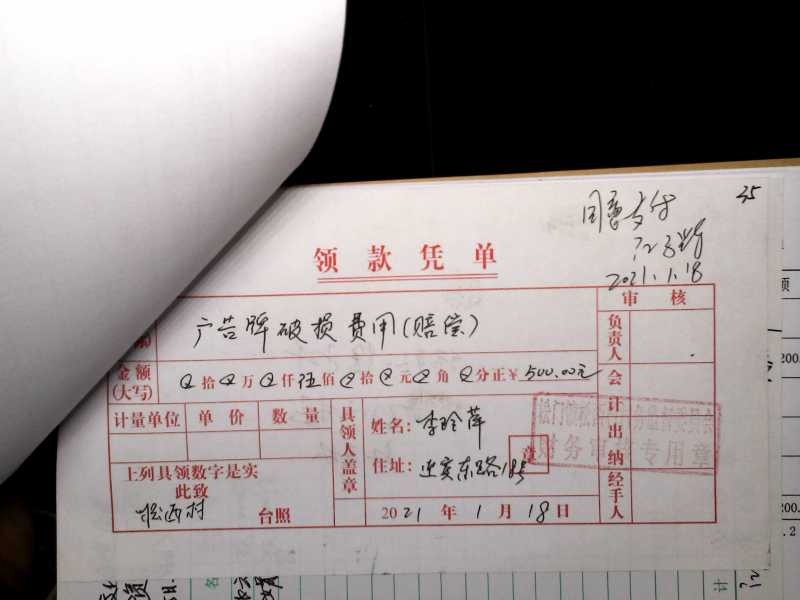 35
同意支付
2021.1.18
领款凭单
审核
广告牌破损费用(赔偿)
负责人
金额(大写) 0拾0万0仟伍佰0拾0元0角0分正¥500.00元
会计
计量单位 单价 数量
具领人盖章
姓名:李玲萍
住址:东路18号
章
财务审核专用章
出纳
上列具领数字是实
此致
松西村 台照
2021年1月18日
经手人
计
200.